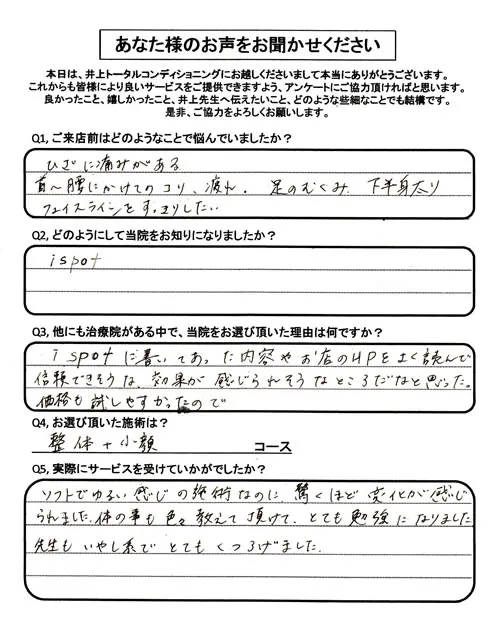 あなた様のお声をお聞かせください
本日は、井上トータルコンディショニングにお越しくださいまして本当にありがとうございます。
これからも皆様により良いサービスをご提供できますよう、アンケートにご協力頂ければと思います。
良かったこと、嬉しかったこと、井上先生へ伝えたいこと、どのような些細なことでも結構です。
是非、ご協力をよろしくお願いします。
Q1, ご来店前はどのようなことで悩んでいましたか？
ひざに痛みがある
首〜腰にかけてのコリ、疲れ. 足のむくみ. 下半身太り
フェイスラインをすっきりしたい
Q2, どのようにして当院をお知りになりましたか？
ispot
Q3, 他にも治療院がある中で、当院をお選び頂いた理由は何ですか？
ispotに書いてあった内容やお店のHPをよく読んで
信頼できそうな、効果が感じられそうなところだなと思った。
価格も試しやすかったので
Q4, お選び頂いた施術は？
整体＋小顔 コース
Q5, 実際にサービスを受けていかがでしたか？
ソフトでゆるい感じの施術なのに、驚くほど変化が感じ
られました.体の事も色々教えて頂けて、とても勉強になりました
先生もいやし系でとてもくつろげました.